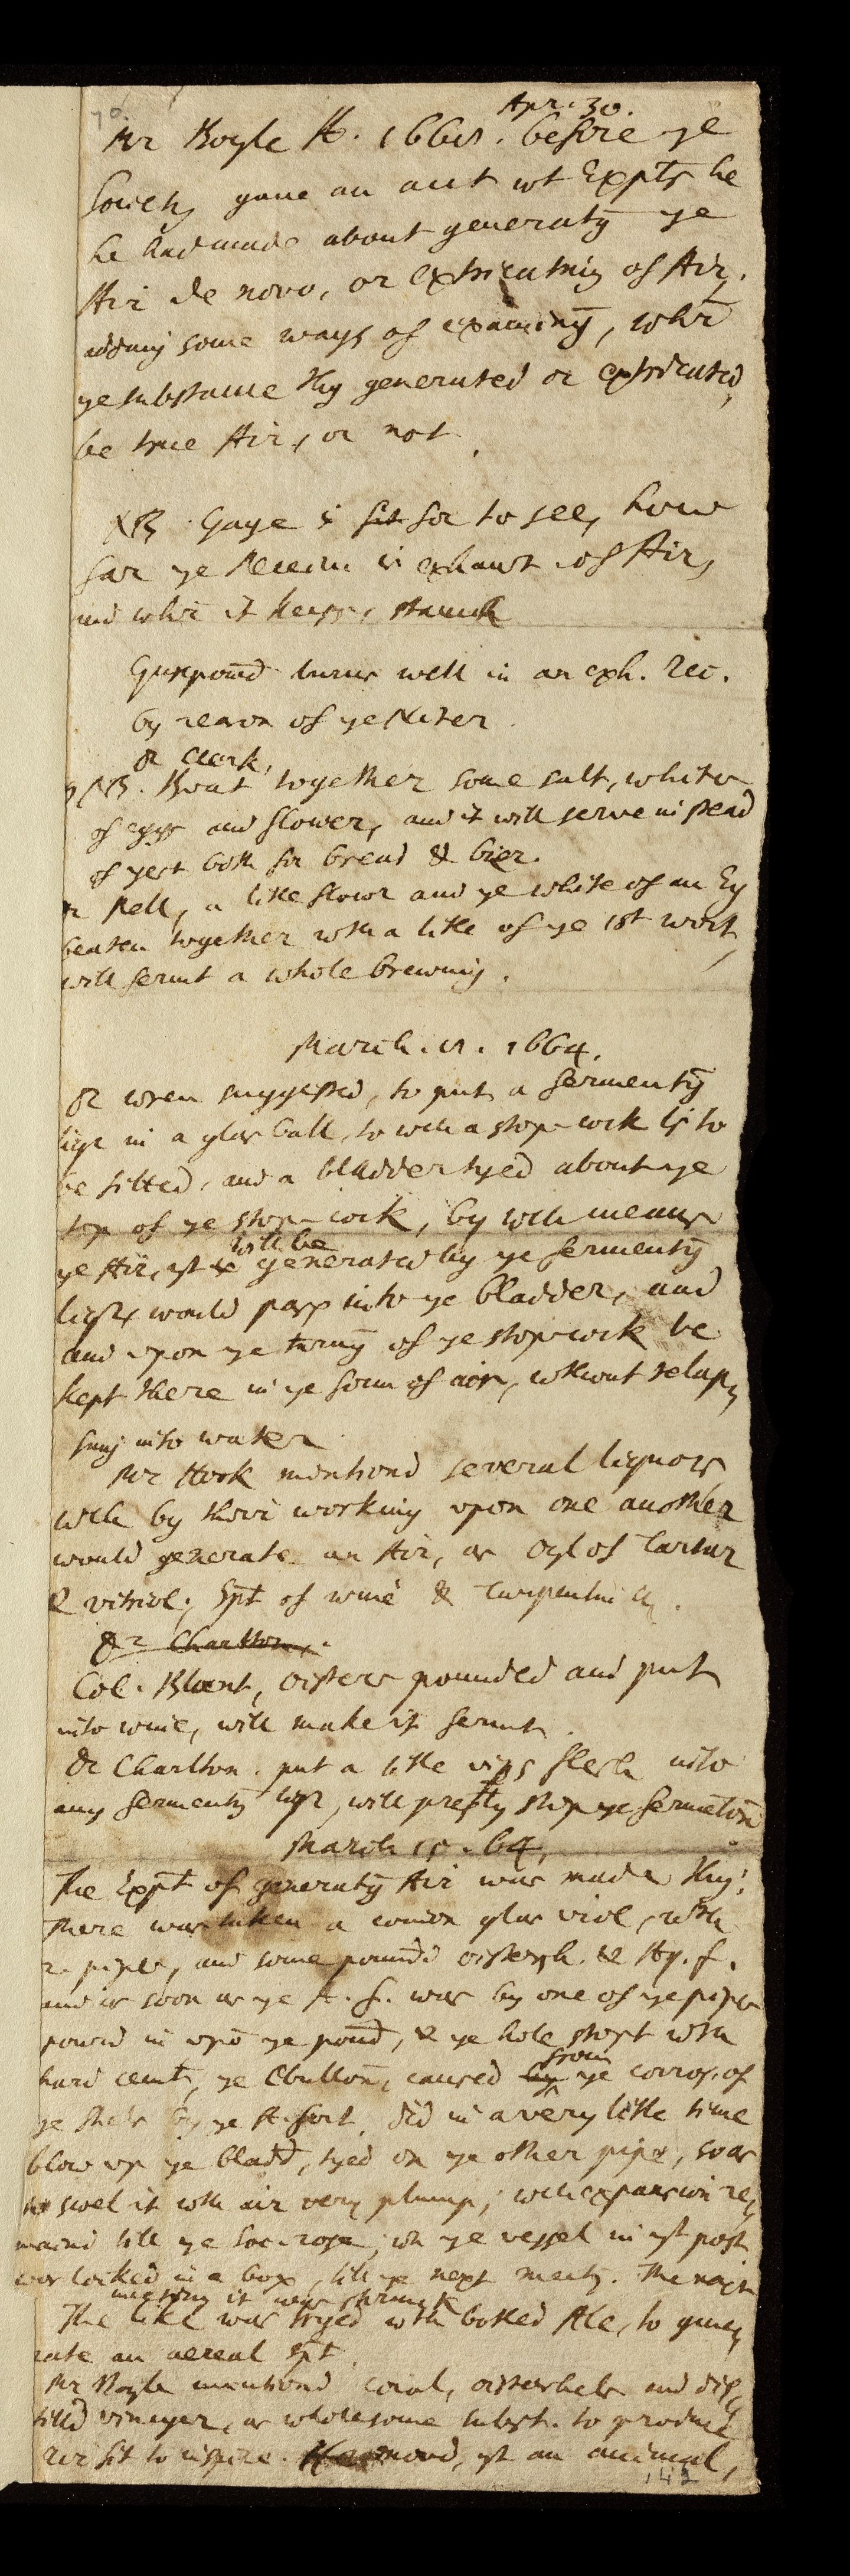 70.
Apr. 30.
Mr Boyle A. 1668. before ye
Society gaue an acct wt Expts he
he had made about generatg ye
Air de novo, or extricating of Air,
adding some ways of examing, whr
ye substance thus generated or extricated,
be true Air, or not.
NB. Gage is fit for to see, how
far ye Receivr is exhaust of Air,
and whr it keeps stanch
Gunpowd burns well in an exh. rec.
by reason of ye Niter.
Dr Clark,
NB. Beat together some salt, whites
of eggs and flower, and it will serve in stead
of yest both for bread & bier.
Mr Nell, a little flour and ye white of an Eg
beaten together wth a little of ye 1st wort,
will fermt a whole brewing.
March. 1664.
Dr Wren suggested, to put a fermentg
liqr in a glas ball, to wch a stop-cock is to
be fitted, and a bladder tyed about ye
top of ye stop-cock, by wch means
will be
ye Air, yt generated by ye fermentg
liqr, would pass into ye bladder, and
and upon ye turng of ye stop-cock be
kept there in ye form of air, without relap,
sing into water
Mr Hook mentiond several liquors
wch by their working upon one another
would generate an Air, as oyl of Tartar
& vitriol; Spt of wine & Turpentin
Dr Charlton
Col. Blunt, oisters pounded and put
into wine, will make it fermt.
Dr Charlton. put a little flesh into
any fermentg liqr, will presty stop ye fermetion
March 64,
The Expt of generatg Air was made thus:
There was taken a comon glas viol, with
2. pipes, and some pound oistersh. & Aq. f.
and as soon as ye A. f. was by one of ye pipes
pourd in upo ye poud, & ye hole stopt with
from
hard cemt, ye ebullion, caused by ye corros. of
ye shels by ye A. fort, did in a very little time
blow up ye bladd, tyed on ye other pipe, so as
to swel it wth air very plump; wch expansion re,
maind till ye Soc. rose; wn ye vessel in yt post
was locked in a box, till ye next meetg. The next
meeting it was shrunk
The like was tryed wth botled Ale, to gene,
rate an aereal Spt.
Mr Boyle mentiond coral, oistershels and dis,
tilld vinager, as wholesome subst. to produce
air fit to inspire. movd, yt an animal,
142